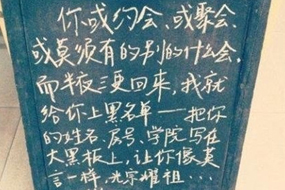 你或约会、或聚会、
或莫须有的别的什么会,
而半夜三更回来,我就
给你上黑名单——把你
的姓名、房号、学院写在
大黑板上,让你像莫
言一样,光宗耀祖...